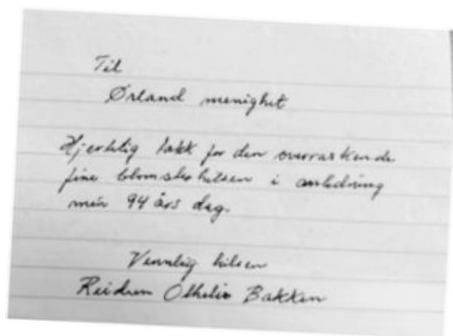 Til
Ørland menighet
Hjertelig takk for den overraskende
fine blomsterhilsen i anledning
min 94 års dag.
Vennlig hilsen
Reidun Othelie Bakken